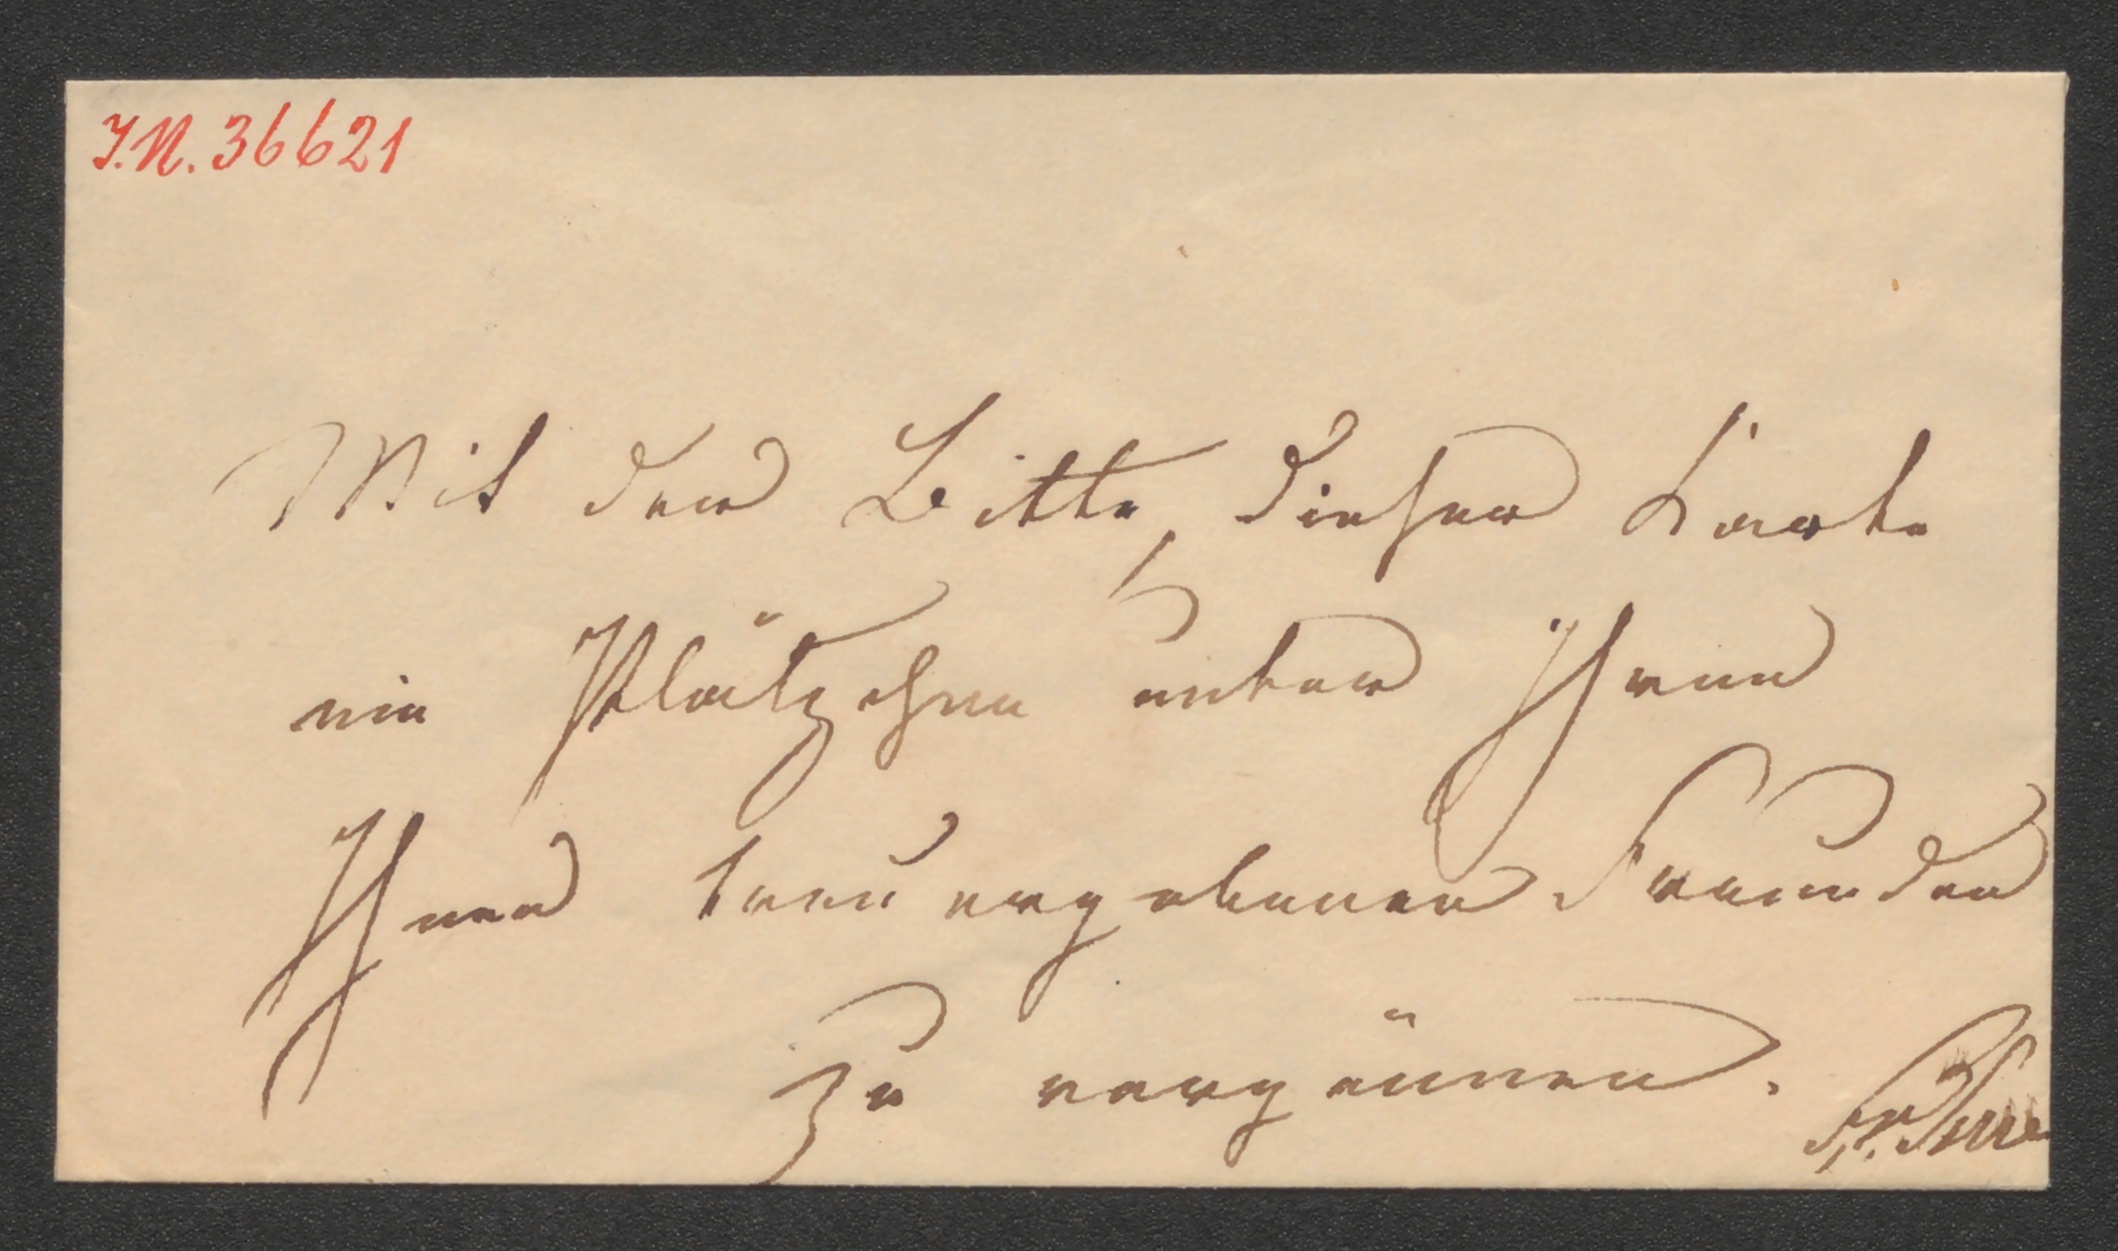 I.N. 36621
Mit der Bitte, dieser Karte
ein Plätzchen unter Ihren
Ihnen treu ergebenen Freunden
zu vergönnen.
Fr.